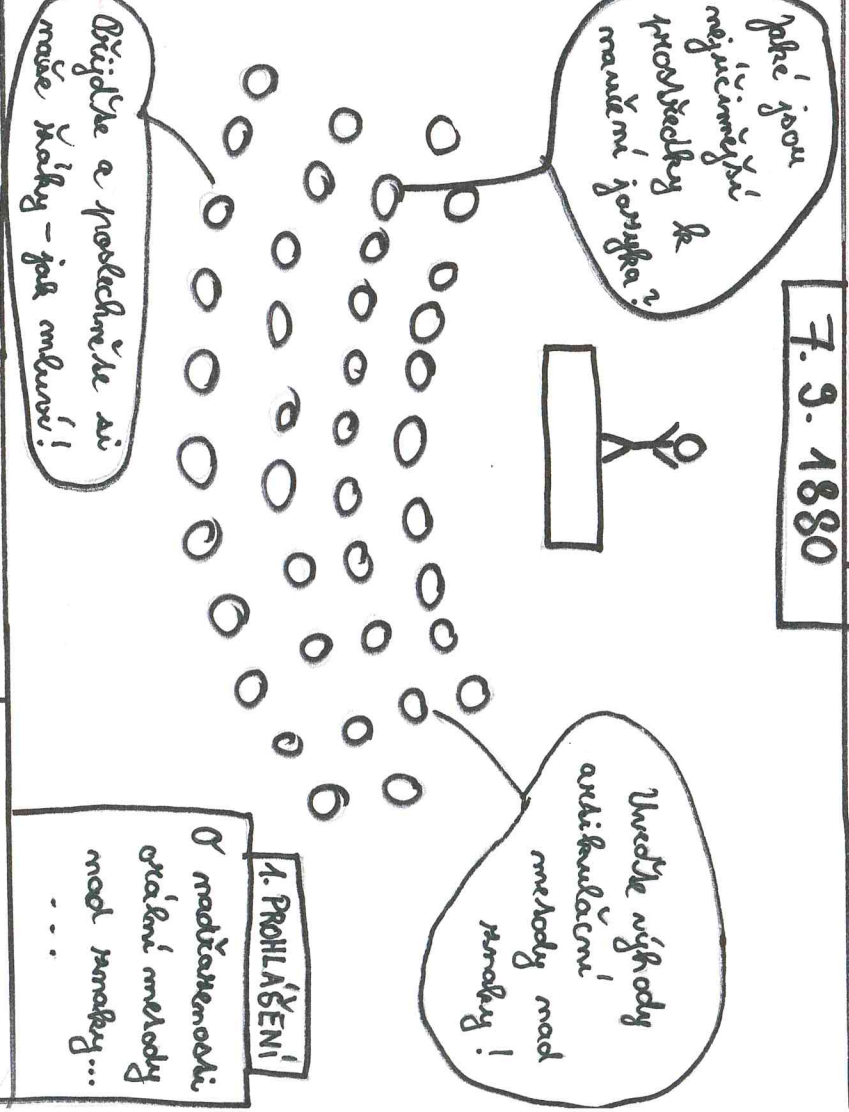 7. 9. 1880
Jaké jsou
nejúčinnější
prostředky k
naučení jazyka?
Uveďte výhody
artikulační
metody nad
znaky!
Přijďte a poslechněte si
naše žáky - jak mluví!
1. PROHLÁŠENÍ
O nadřazenosti
orální metody
nad znaky...
...